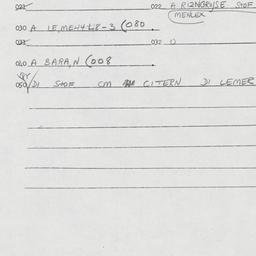 021 022 A RIZNGRIJSE STOF
MENLEX
030 A IE,MEH478-3 (080
031 032 1)
040 A BARA,N (008
050 DI STOF CM CITERN DI LEMER